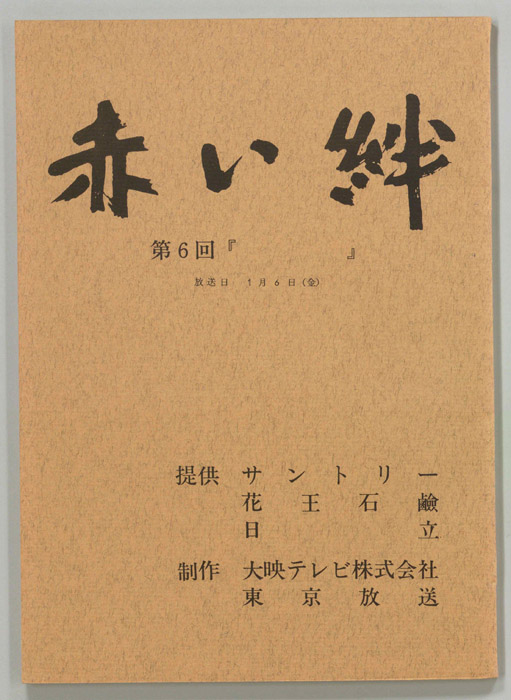 赤い絆
第6回『　　　』
放送日 1月6日(金)
提供 サントリー
花王石鹼
日立
制作 大映テレビ株式会社
東京放送